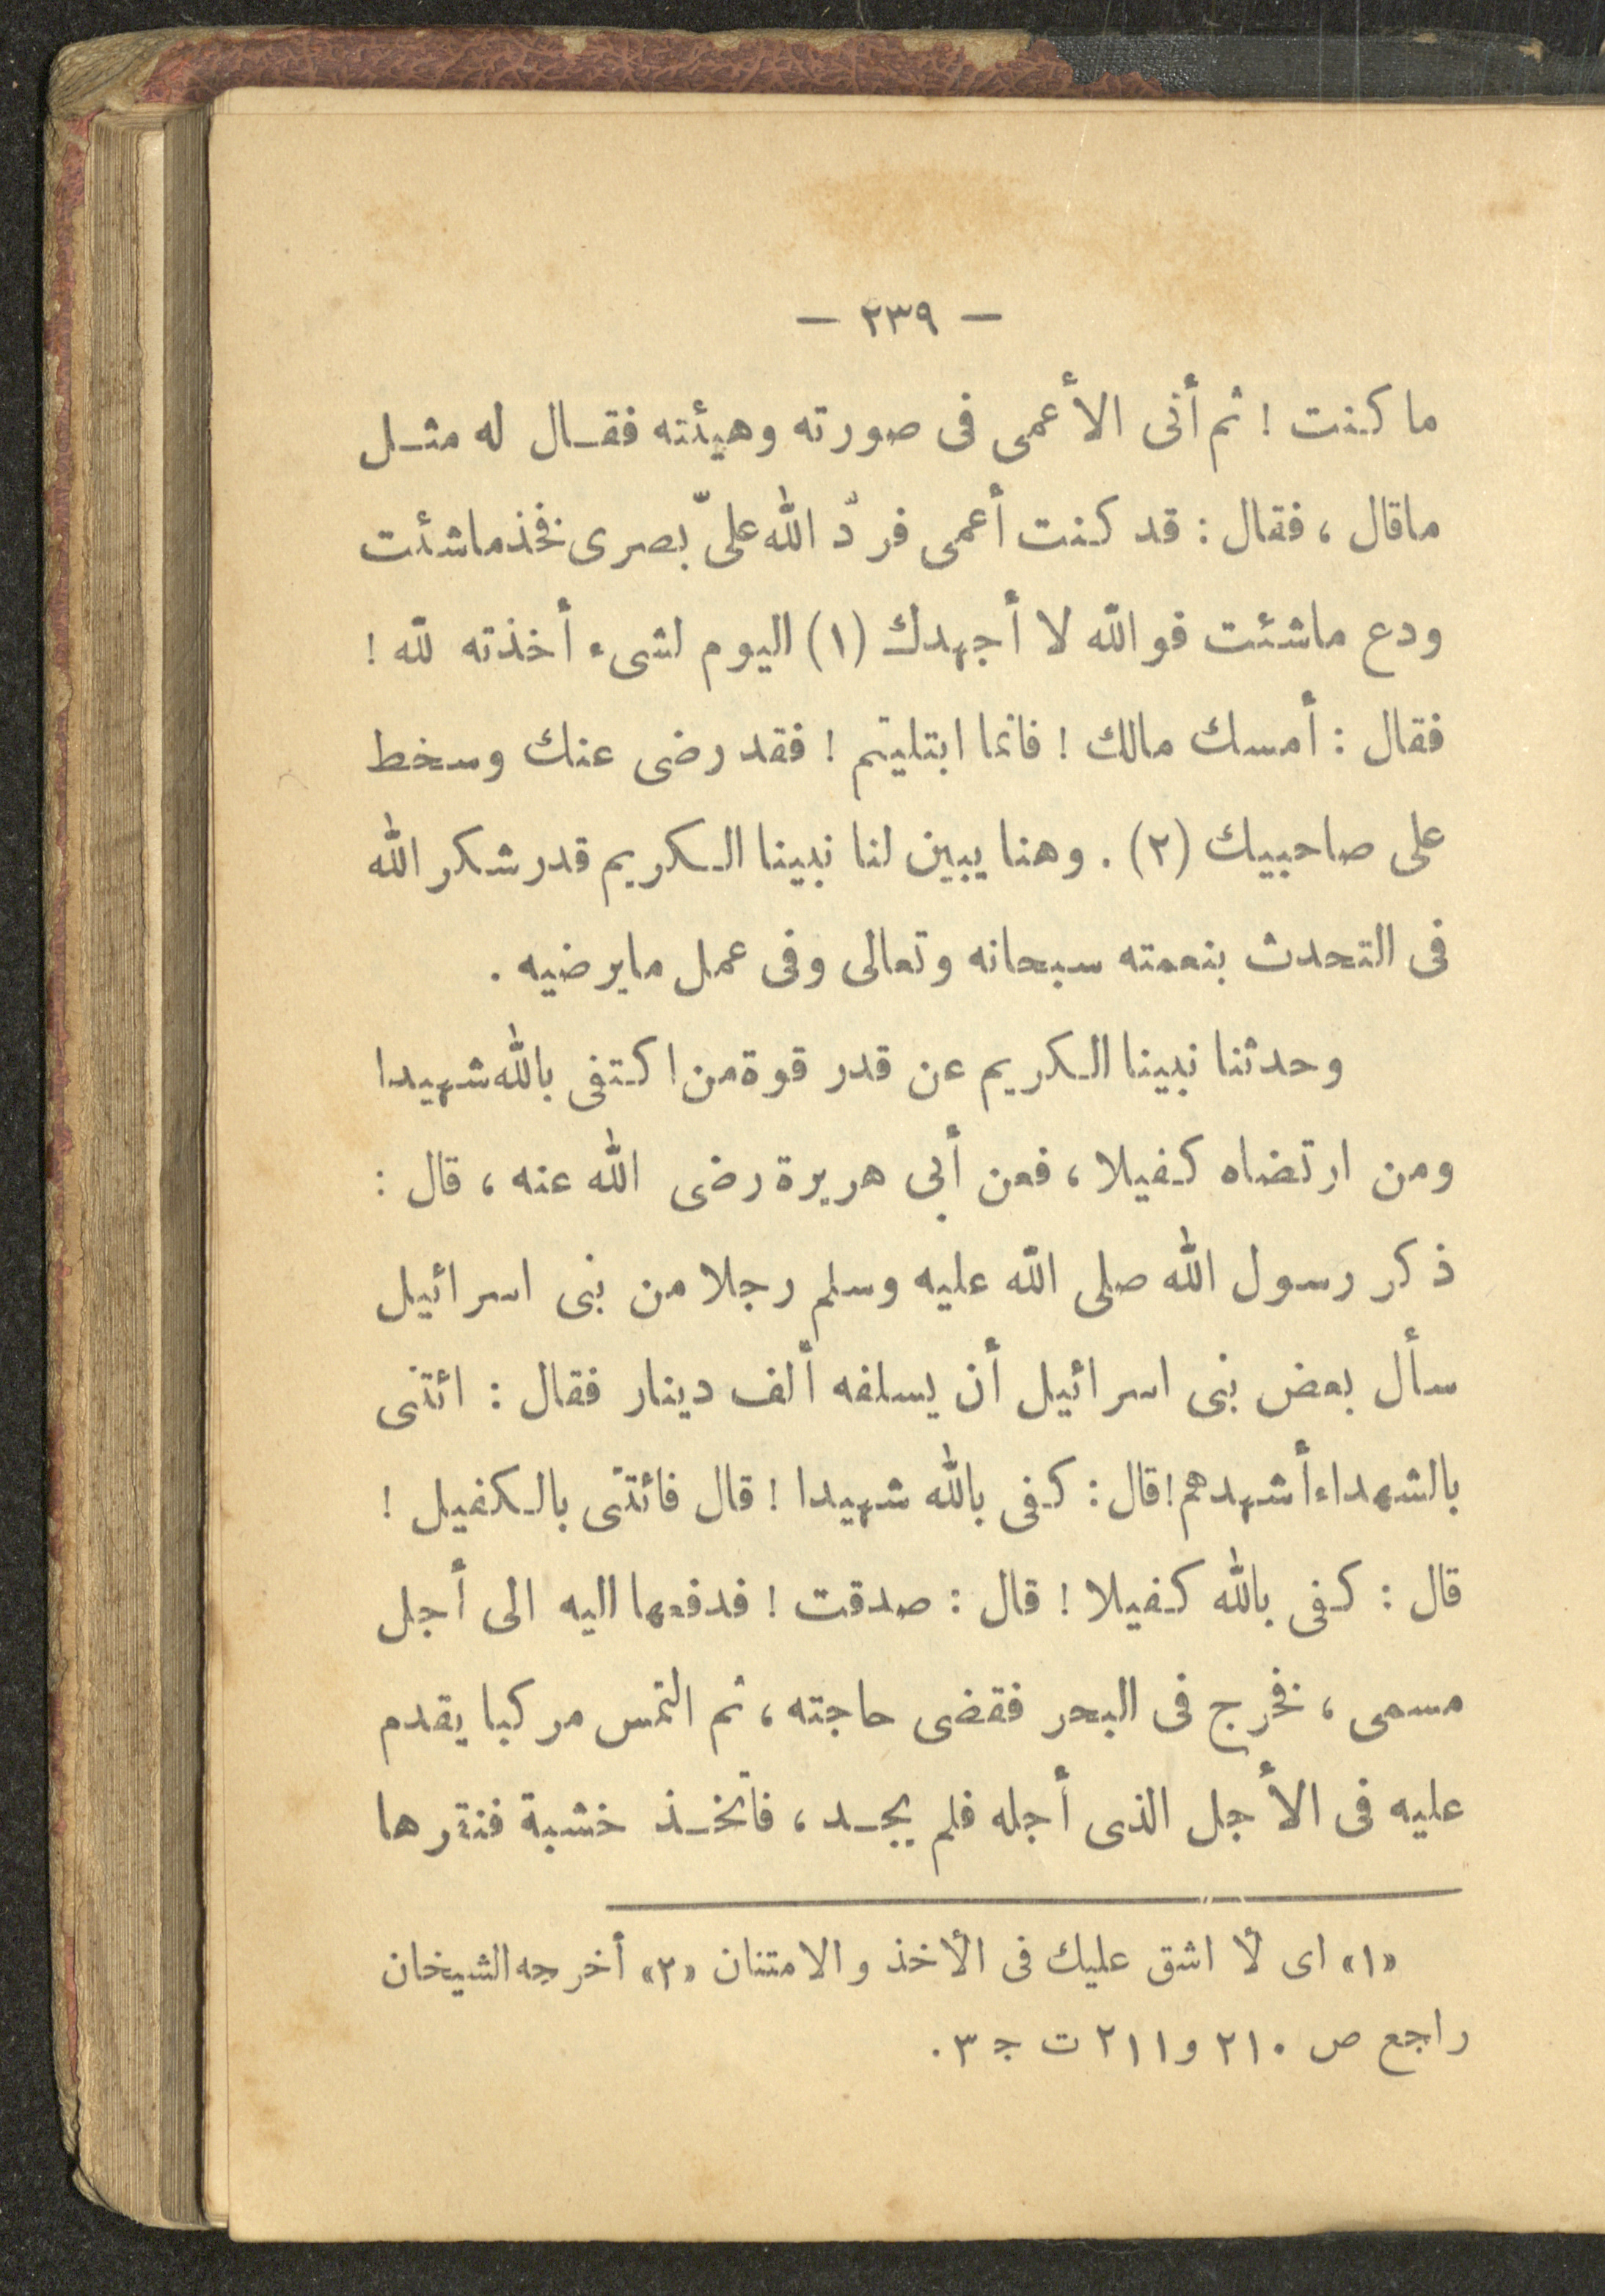 — ٢٣٩ —
ما كنت ! ثم أتى الأعمى فى صورته وهيئته فقال له مثل
ماقال ، فقال : قد كنت أعمى فردّ الله علىّ بصرى نخذ ماشئت
ودع ماشئت فوالله لا أجهدك (١) اليوم لشىء أخذته لله !
فقال : أمسك مالك ! فانما ابتليتم ! فقد رضى عنك وسخط
على صاحبيك (٢) . وهنا يبين لنا نبينا الكريم قدر شكر الله
فى التحدث بنعمته سبحانه وتعالى وفى عمل مايرضيه .
وحدثنا نبينا الكريم عن قدر قوة من اكتفى بالله شهيدا
ومن ارتضاه كفيلا ، فعن أبى هريرة رضى الله عنه ، قال :
ذكر رسول الله صلى الله عليه وسلم رجلا من بنى اسرائيل
سأل بعض بنى اسرائيل أن يسلفه ألف دينار فقال : ائتنى
بالشهداء أشهدهم ! قال : كفى بالله شهيدا ! قال فائتنى بالكفيل !
قال : كفى بالله كفيلا ! قال : صدقت ! فدفعها اليه الى أجل
مسمى ، نفرج فى البحر فقضى حاجته ، ثم التمس مركبا يقدم
عليه فى الأجل الذى أجله فلم يجد ، فاتخذ خشبة فنقرها
«١» اى لا اشق عليك فى الأخذ والامتنان «٢» أخرجه الشيخان
راجع ص ٢١٠ و٢١١ ت ج ٣ .